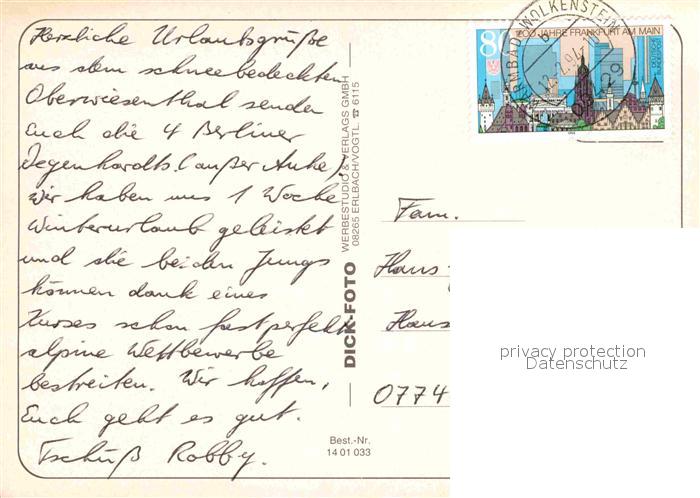 Herzliche Urlaubsgrüße
aus dem schneebedeckten
Oberwiesenthal senden
Euch die 4 Berliner
Degenhardts (außer Anke).
Wir haben uns 1 Woche
Winterurlaub geleistet
und die beiden Jungs
können dank eines
Kurses schon fast perfekt
alpine Wettbewerbe
bestreiten. Wir hoffen,
Euch geht es gut.
Tschüß Robby.
DICK-FOTO
WERBESTUDIO & VERLAGS GMBH
08265 ERLBACH/VOGTL. ☎ 6115
Best.-Nr.
14 01 033
WOLKENSTEIN
80
1200 JAHRE FRANKFURT AM MAIN
DEUTSCHE
BUNDESPOST
Fam.
Hans
Hans
0774
privacy protection
Datenschutz